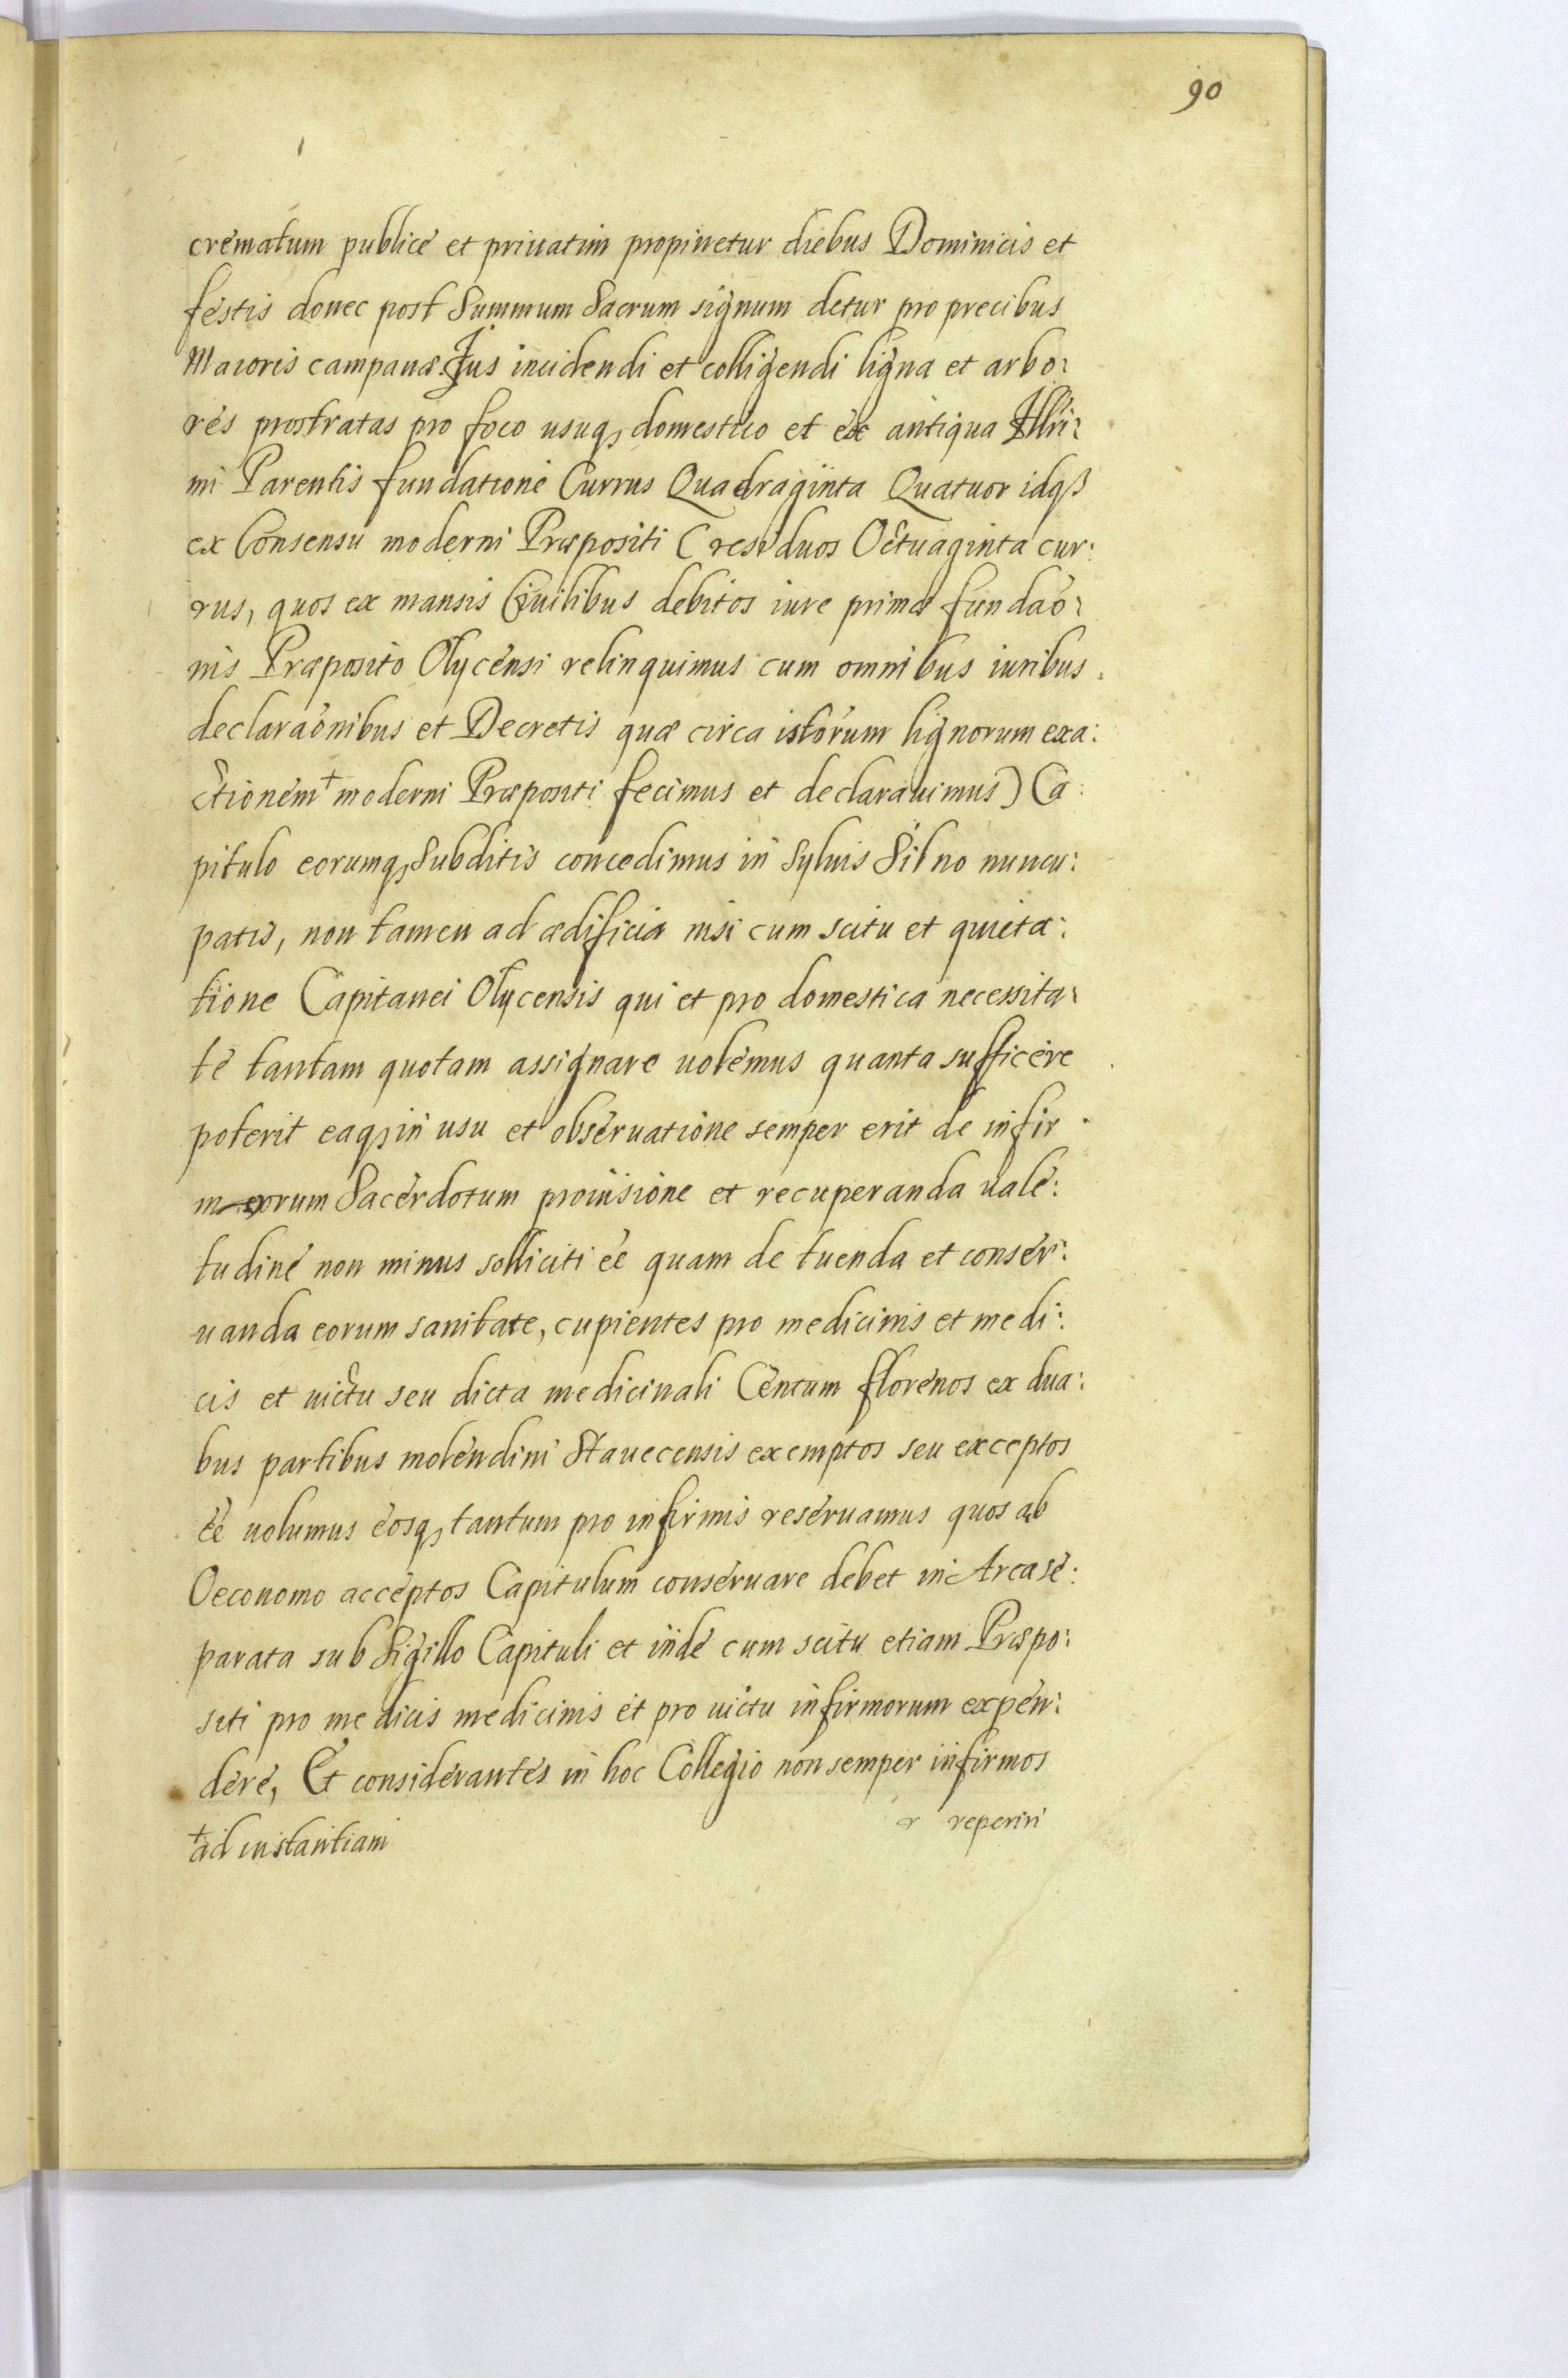 90
crematum publicè et priuatim propinetur diebus Dominicis et
festis donec post Summum Sacrum signum detur pro precibus
Maioris campanæ. Jus incidendi et colligendi ligna et arbo:
res prostratas pro foco usuq₃ domestico et ex antiqua Illri:
mi Parentis fundatione Currus Quadraginta Quatuor idqß
ex Consensu moderni Præpositi (residuos Octuaginta cur:
rus, quos ex mansis Ciuilibus debitos iure primæ fundaõ:
nis Præposito Olycensi relinquimus cum omnibus iuribus
declaraõnibus et Decretis quæ circa istorum lignorum exa:
ctionem† moderni Præpositi fecimus et declarauimus) Ca:
pitulo eorumq₃ Subditis concedimus in Syluis Silno nuncu:
patis, non tamen ad ædificia nisi cum scitu et quieta:
tione Capitanei Olycensis qui et pro domestica necessita:
te tantam quotam assignare uolemus quanta sufficere
poterit eaq₃ in usu et obseruatione semper erit de infir
morum Sacerdotum prouisione et recuperanda uale:
tudine non minus solliciti eē quam de tuenda et conser:
uanda eorum sanitate, cupientes pro medicinis et medi:
cis et uictu seu dicta medicinali Centum florenos ex dua:
bus partibus molendini Stauecensis exemptos seu exceptos
eē uolumus eosq₃ tantum pro infirmis reseruamus quos ab
Oeconomo acceptos Capitulum conseruare debet in Arca se:
parata sub Sigillo Capituli et inde cum scitu etiam Præpo:
siti pro medicis medicinis et pro uictu infirmorum expen:
dere, Et considerantes in hoc Collegio non semper infirmos
r reperiri
† ad instantiam